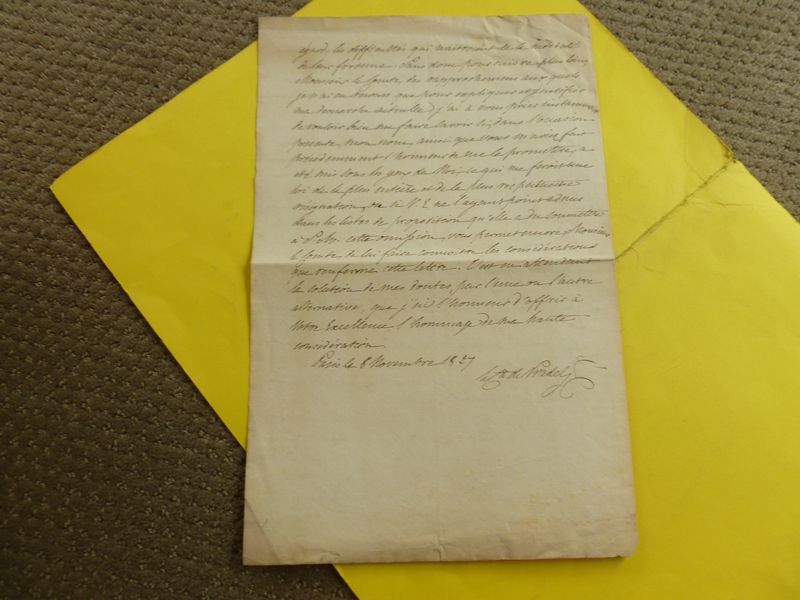 égard, les difficultés qui naitroient de la médiocrité
de leur fortune. Sans donc poursuivre plus long
Monsieur le Comte, des rapprochemens auxquels
je n'ai eu recours que pour expliquer et justifier
ma démarche actuelle, j'ai à vous prier instamment
de vouloir bien me faire savoir si, dans l'occasion
présente, mon nom, ainsi que vous m'aviez fait
précédemment l'honneur de me le promettre, a
été mis sous les yeux du Roi, ce qui me feroit une
loi de la plus entière et de la plus respectueuse
résignation, ou si V. E. ne l'ayant point admis
dans les listes de proposition qu'elle a du soumettre
à S. M. cette omission, vous permet encore, Monsieur
le Comte de lui faire connoitre les considérations
que renferme cette lettre. C'est en attendant
la solution de mes doutes, par l'une ou l'autre
alternative, que j'ai l'honneur d'offrir à
Votre Excellence l'hommage de ma haute
considération.
Paris le 8 Novembre 1827